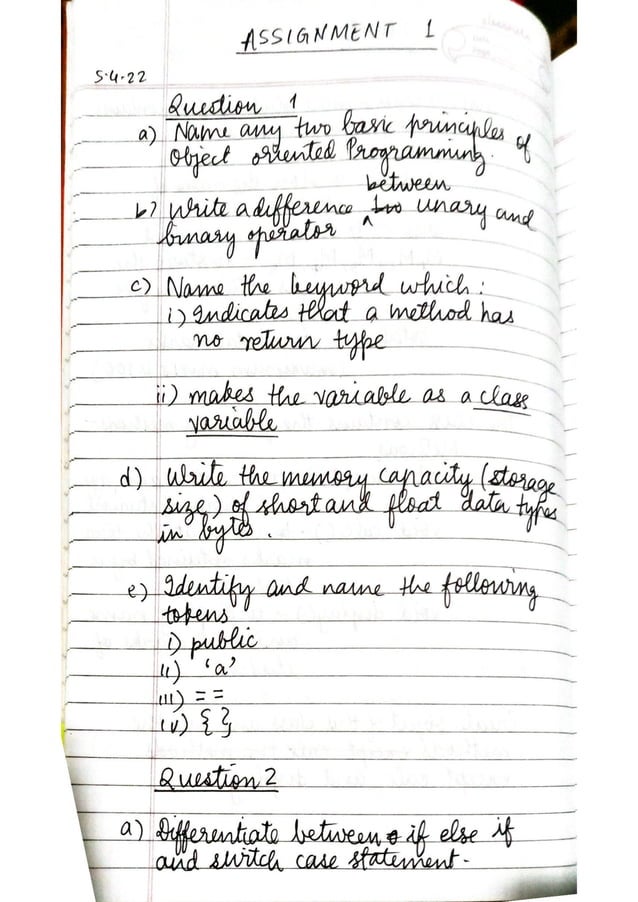 ASSIGNMENT 1
5.4.22
Question 1
a) Name any two basic principles of
Object oriented Programming.
between
b) Write a difference ^ unary and
binary operator
c) Name the keyword which :
i) Indicates that a method has
no return type
ii) makes the variable as a class
variable
d) Write the memory capacity (storage
size) of short and float data types
in bytes.
e) Identify and name the following
tokens
i) public
ii) 'a'
iii) ==
iv) { }
Question 2
a) Differentiate between if else if
and switch case statement.